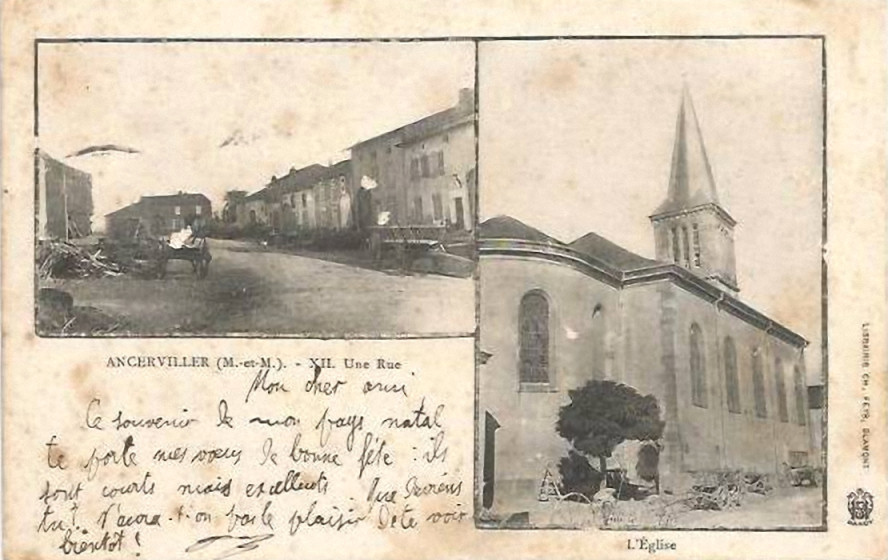 ANCERVILLER (M.-et-M.). - XII. Une Rue
Mon cher ami
Ce souvenir de mon pays natal
te porte mes voeux de bonne fête : ils
sont courts mais excellents. Que deviens
tu? N'aura-t-on pas le plaisir de te voir
bientôt!
L'Église
LIBRAIRIE CH. FEYR, BLAMONT